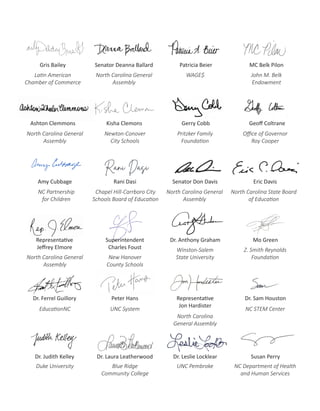 Gris Bailey
Senator Deanna Ballard
Patricia Beier
MC Belk Pilon
Latin American
Chamber of Commerce
North Carolina General
Assembly
WAGE$
John M. Belk
Endowment
Ashton Clemmons
Kisha Clemons
Gerry Cobb
Geoff Coltrane
North Carolina General
Assembly
Newton-Conover
City Schools
Pritzker Family
Foundation
Office of Governor
Roy Cooper
Amy Cubbage
Rani Dasi
Senator Don Davis
Eric Davis
NC Partnership
for Children
Chapel Hill-Carrboro City
Schools Board of Education
North Carolina General
Assembly
North Carolina State Board
of Education
Representative
Jeffrey Elmore
Superintendent
Charles Foust
Dr. Anthony Graham
Mo Green
North Carolina General
Assembly
New Hanover
County Schools
Winston-Salem
State University
Z. Smith Reynolds
Foundation
Dr. Ferrel Guillory
Peter Hans
Representative
Jon Hardister
Dr. Sam Houston
EducationNC
UNC System
North Carolina
General Assembly
NC STEM Center
Dr. Judith Kelley
Dr. Laura Leatherwood
Dr. Leslie Locklear
Susan Perry
Duke University
Blue Ridge
Community College
UNC Pembroke
NC Department of Health
and Human Services